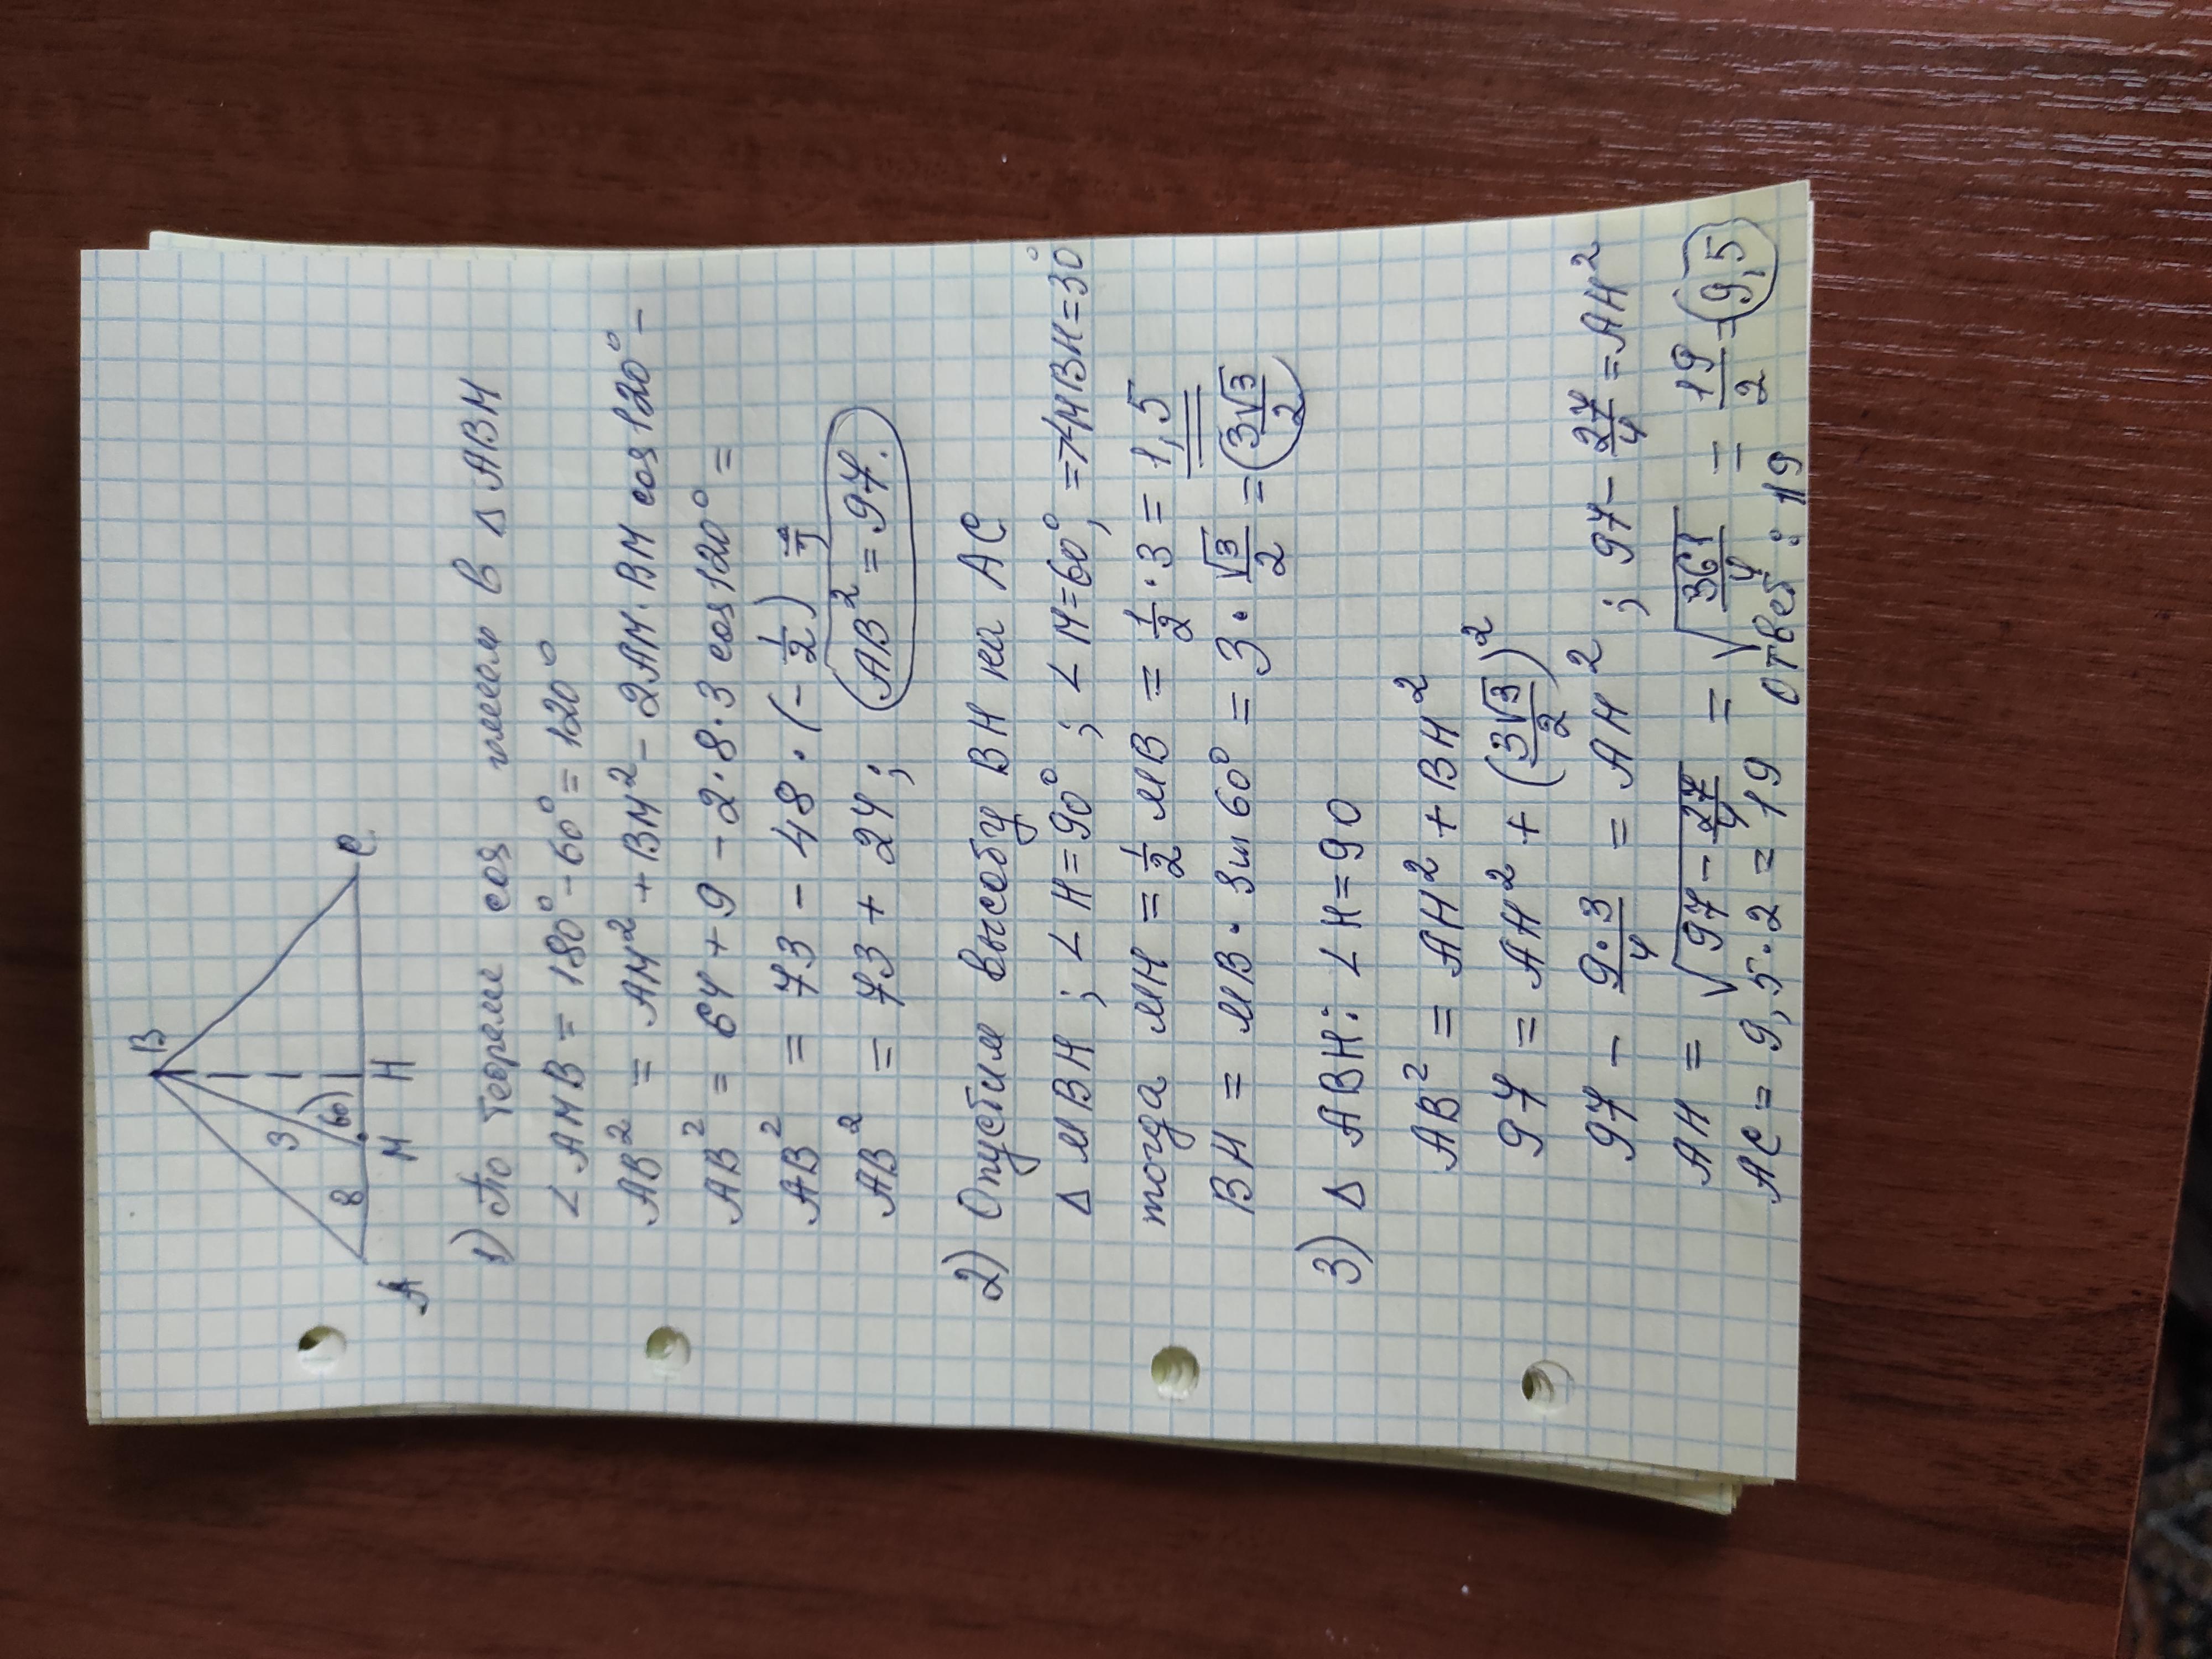 B
3
60
8
A
M
H
C
1) По теореме cos имеем в △ ABM
∠ AMB = 180° - 60° = 120°
AB² = AM² + BM² - 2AM·BM cos 120° -
AB² = 64 + 9 - 2·8·3 cos 120° =
AB² = 73 - 48·(-1/2) =
AB² = 73 + 24; AB² = 97.
2) Опустим высоту BH на AC
△ MBH; ∠ H = 90°; ∠ M = 60°, => ∠MBH = 30°
тогда MH = 1/2 MB = 1/2 · 3 = 1,5
BH = MB · sin 60° = 3 · √3/2 = 3√3/2
3) △ ABH: ∠ H = 90
AB² = AH² + BH²
97 = AH² + (3√3/2)²
97 - 9·3/4 = AH²; 97 - 27/4 = AH²
AH = √(97 - 27/4) = √(361/4) = 19/2 = 9,5
AC = 9,5·2 = 19 Ответ: 19